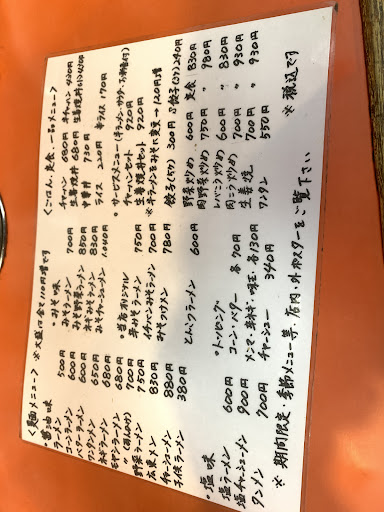 〈麺メニュー〉 ※大盛は全て110円増です
・醤油味
ラーメン 500円
コーンラーメン 600円
バターラーメン 600円
ワンタンメン 650円
ネギラーメン 680円
モヤシラーメン 680円
〃 (肉入り) 700円
野菜ラーメン 750円
広東メン 830円
チャーシューメン 880円
子供ラーメン 380円
・塩味
塩ラーメン 600円
塩チャーシューメン 900円
タンメン 700円
・みそ味
みそラーメン 700円
みそ野菜ラーメン 850円
ネギみそラーメン 830円
みそチャーシューメン 1,040円
・当店オリジナル
辛みそラーメン 750円
イチバンみそラーメン 700円
みそつけメン 780円
とんこつラーメン 600円
・トッピング
コーン・バター 各70円
メンマ・辛ネギ・味玉・各130円
チャーシュー 340円
〈ごはん、定食、一品メニュー〉
チャーハン 680円 半チャーハン 420円
生姜焼丼 680円
中華丼 730円
ライス 220円 半ライス 170円
・サービスメニュー(半ラーメン・サラダ、お新香付)
チャーハンセット 920円
生姜焼丼セット 920円
※半ラーメンをみそに変更→120円増
餃子(5ケ) 300円 餃子(3ケ)240円
野菜炒め 600円 定食 830円
肉野菜炒め 750円 〃 980円
レバニラ炒め 600円 〃 830円
肉ニラ炒め 700円 〃 930円
生姜焼 700円 〃 930円
ワンタン 550円
※税込です
※期間限定・季節メニュー等、店内・外ポスターをご覧下さい